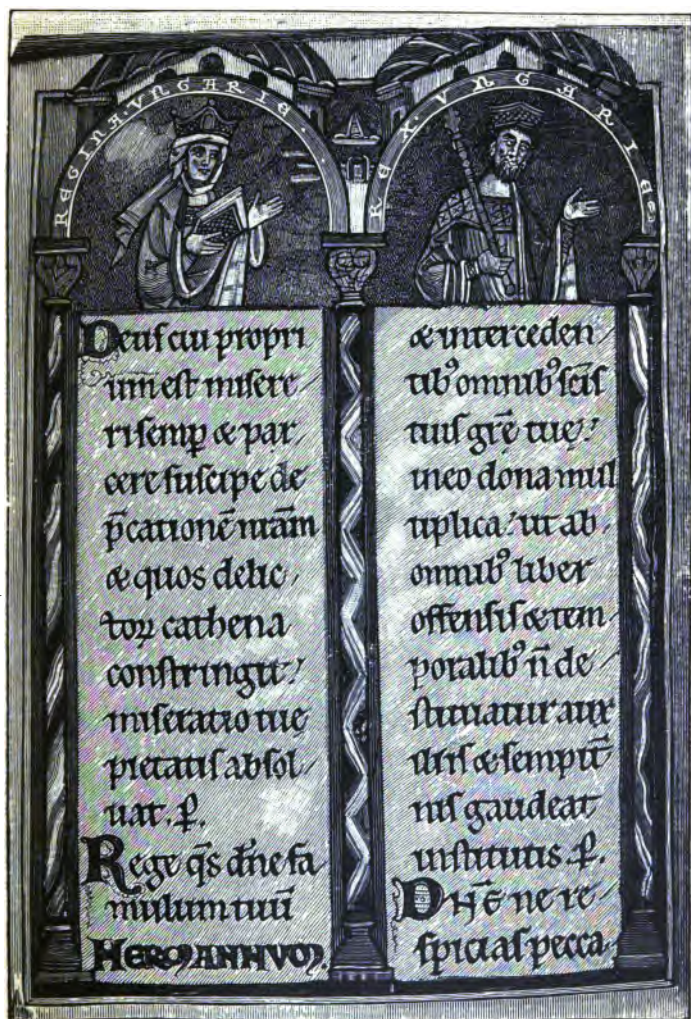 REGINA·VNGARIE
REX·VNGARIE
Deuſ cui propri
um eſt miſere
ri ſemꝑ & par
cere ſuſcipe de
p̄cationē nr̄am
& quos delic
toꝝ cathena
conſtringit:
miſeratio tue
pietatiſ abſol
uat. P̄.
Rege q̄s dn̄e fa
mulum tuū
HERMANNVM.
& interceden
tibꝰ omnibꝰ ſcīſ
tuiſ gr̄e tue:
in eo dona mul
tiplica: ut ab
omnibꝰ liber
offenſiſ & tem
poralibꝰ n̄ de
ſtituatur aux
iliiſ & ſempit̄
niſ gaudeat
inſtitutis. P̄.
DN̄E ne re
ſpiciaſ pecca